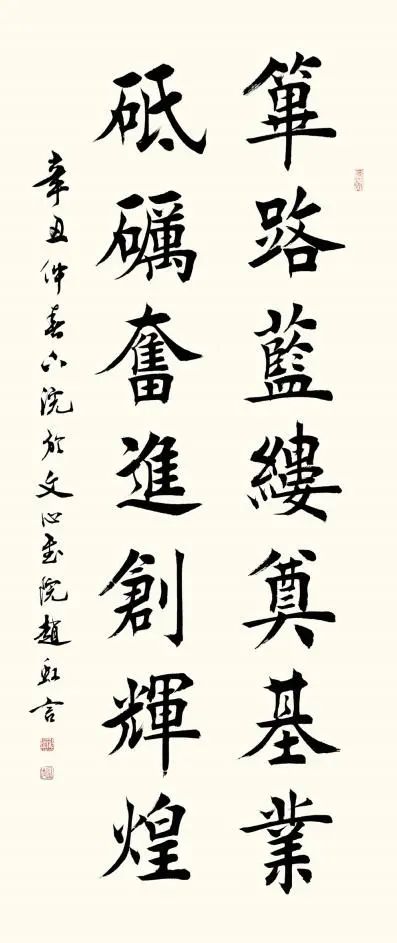 篳路藍縷奠基業
砥礪奮進創輝煌
辛丑仲春下浣於文心書院趙虹言